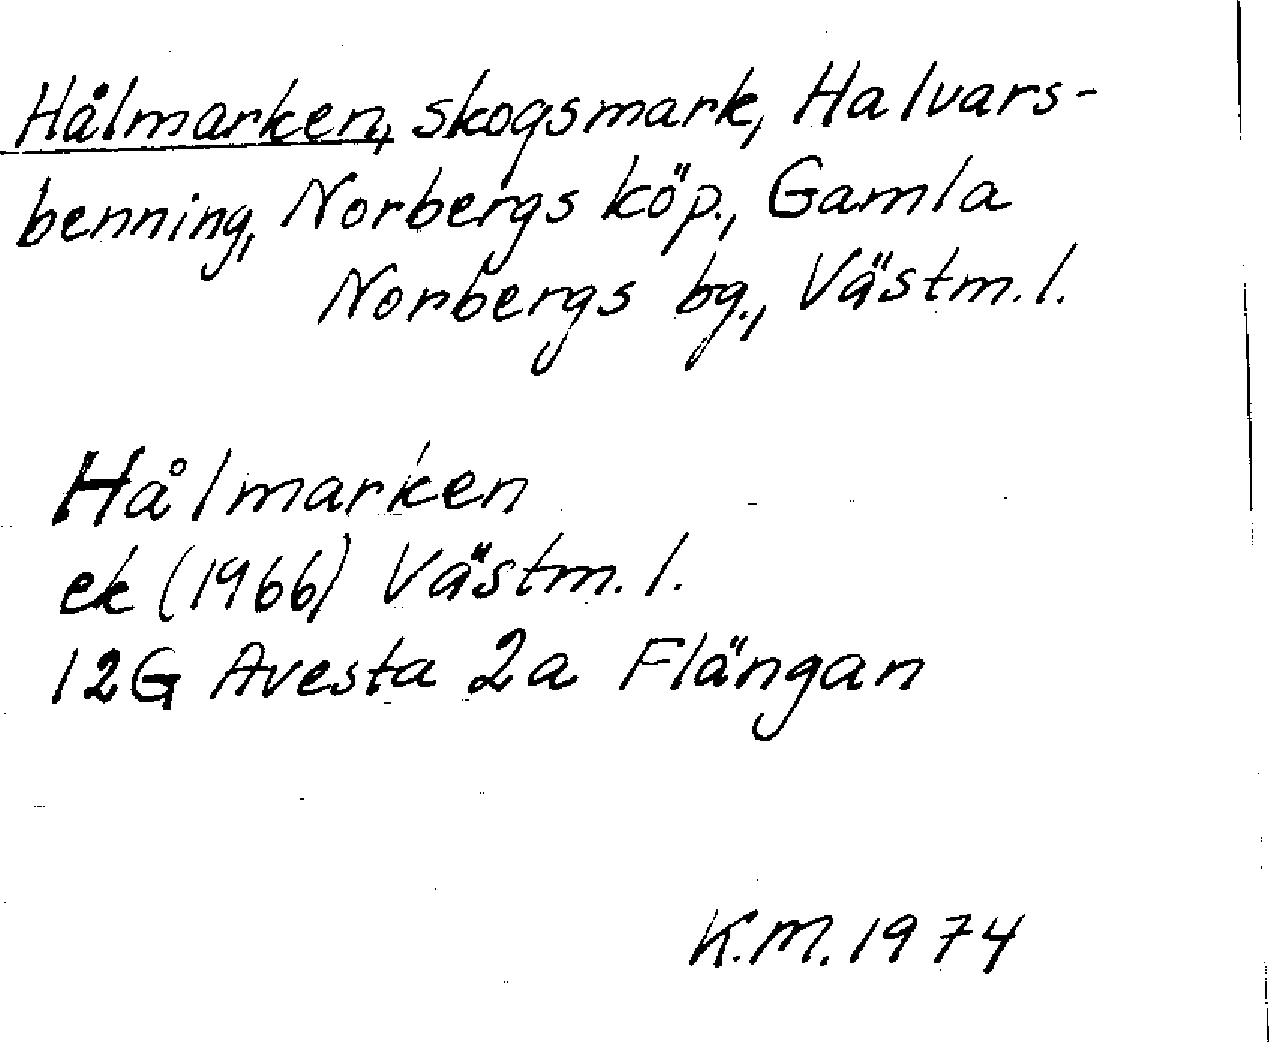 Hålmarken, skogsmark, Halvars-
benning, Norbergs köp., Gamla
Norbergs bg., Västm. l.
Hålmarken
ek (1966) Västm. l.
12G Avesta 2a Flängan
K.M. 1974